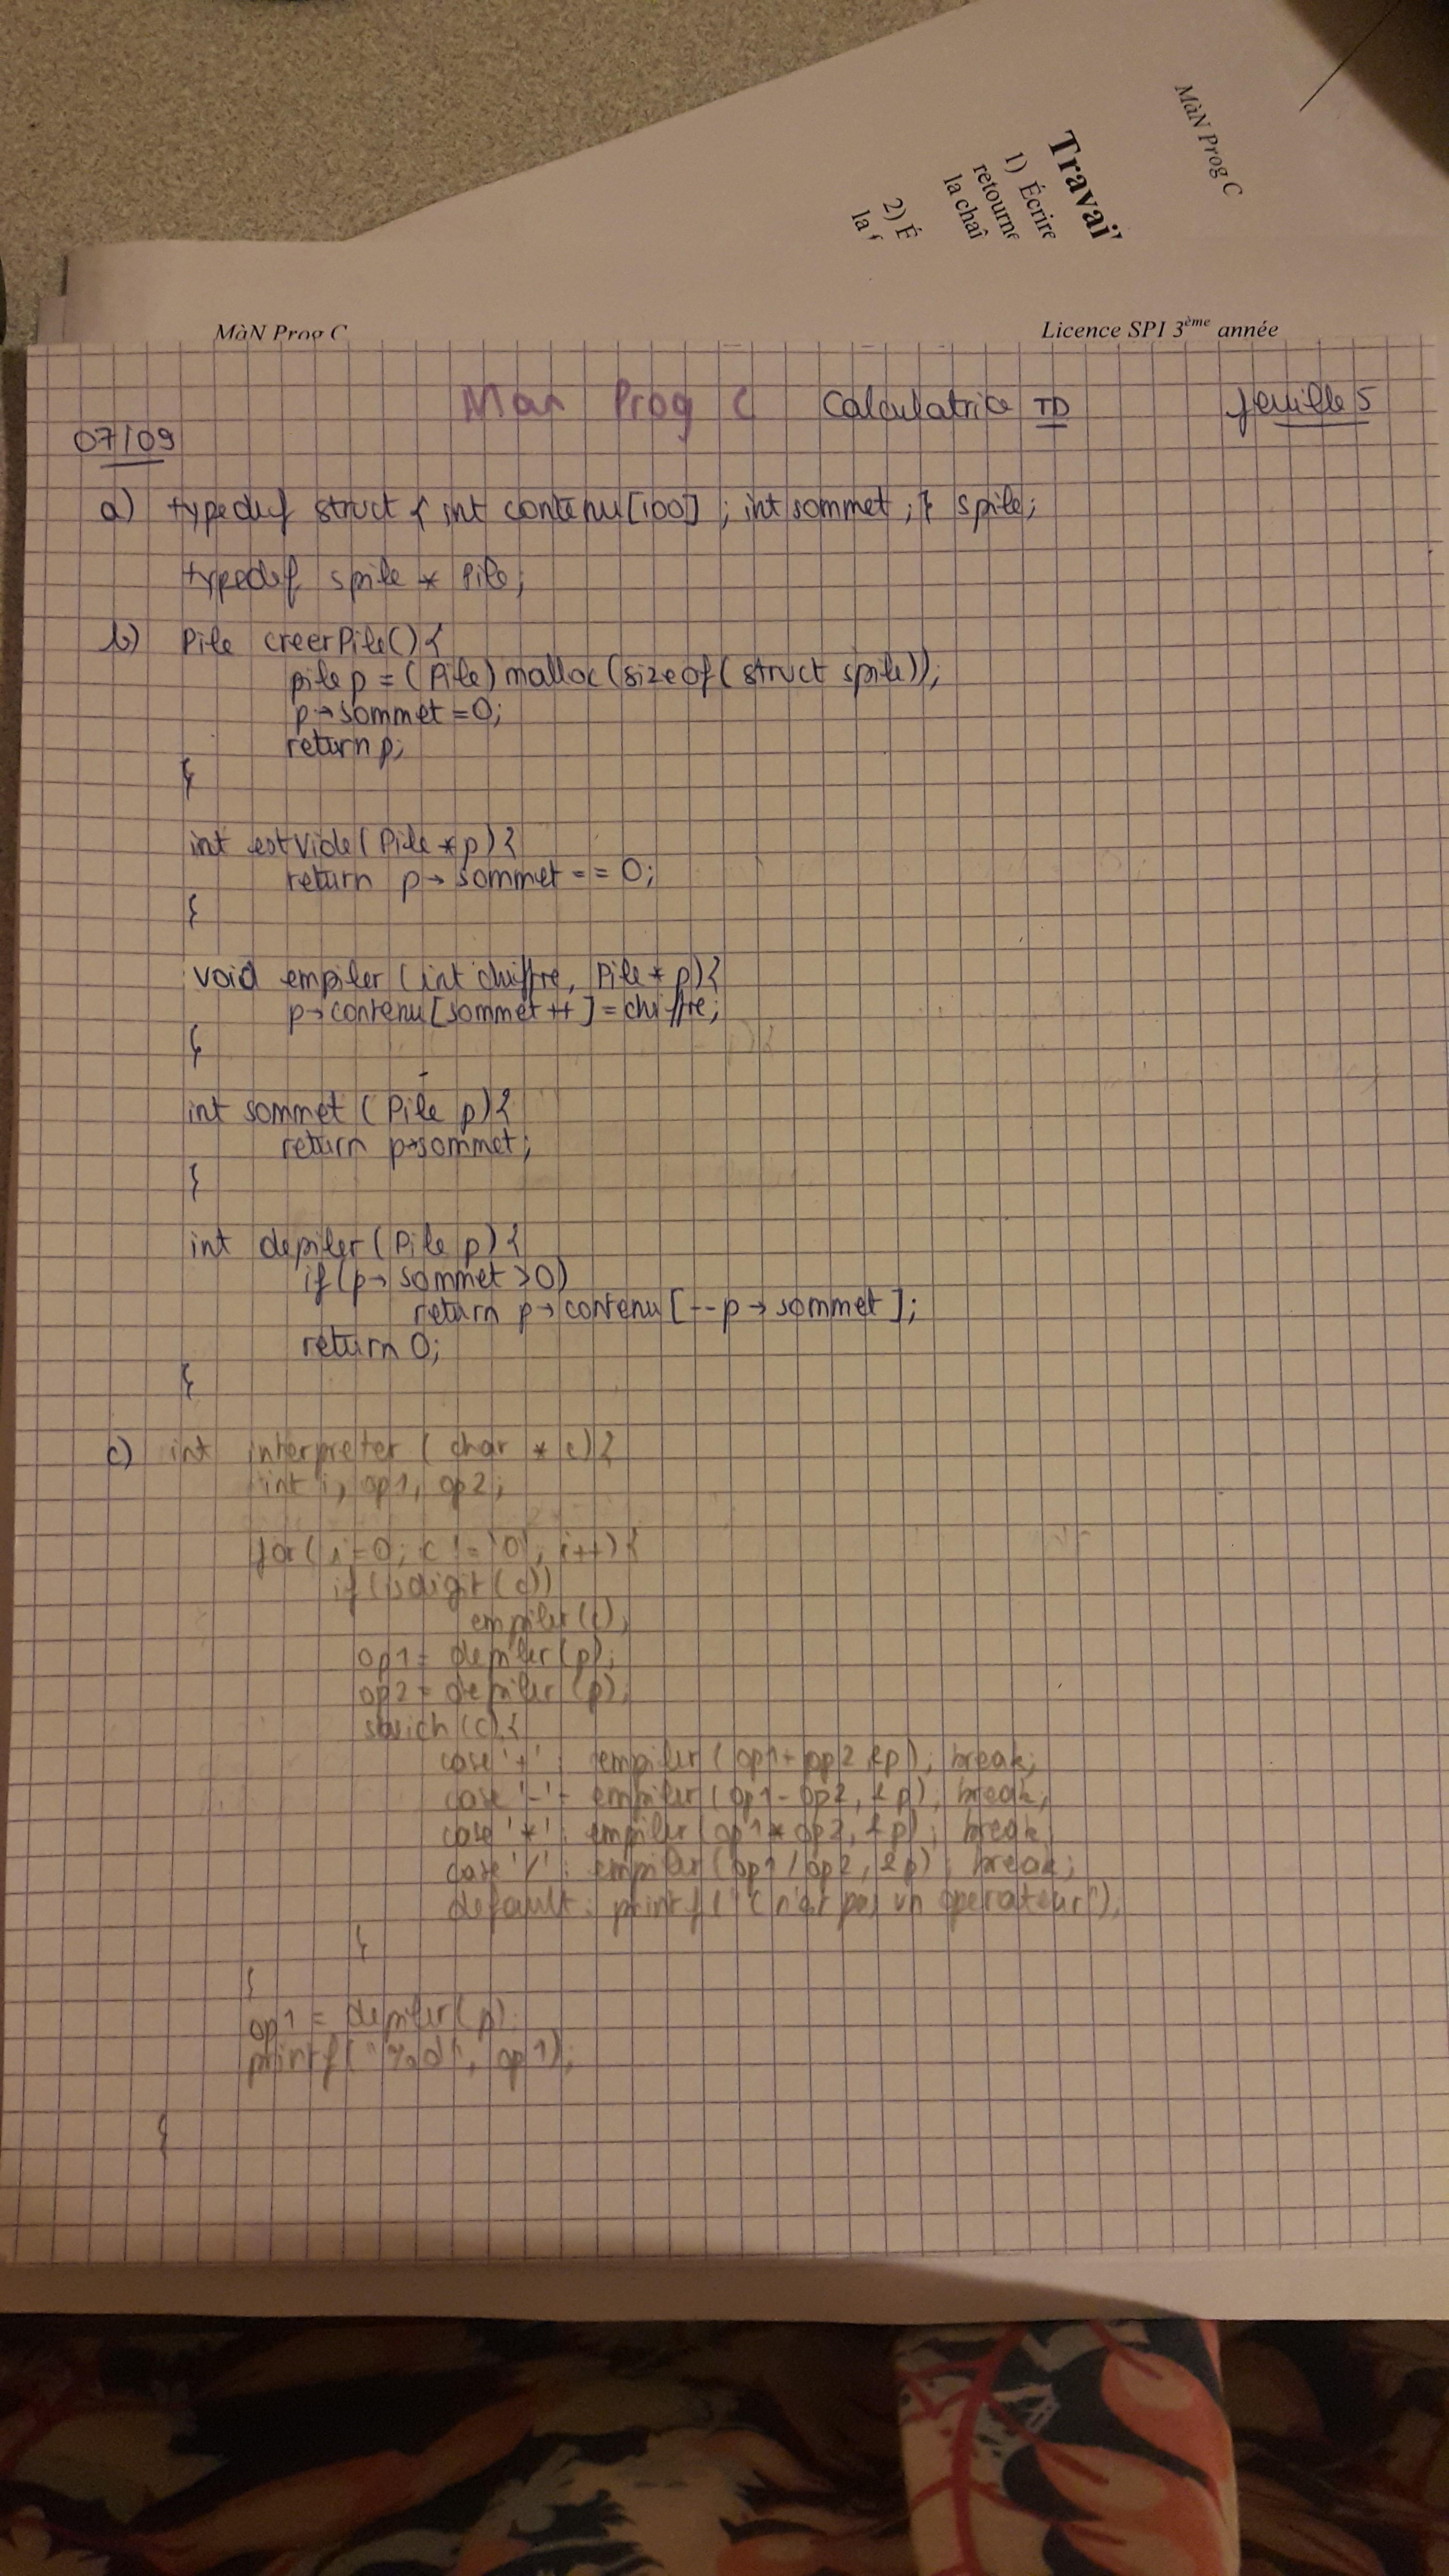 MàN Prog C
Travai
1) Écrire
retourne
la chaî
2) É
la
MàN Prog C
Licence SPI 3ème année
Man Prog C Calculatrice TD feuille 5
07/09
a) typedef struct { int contenu[100] ; int sommet ; } spile;
typedef spile * Pile;
b) Pile creerPile(){
pile p = (Pile) malloc (sizeof( struct spile));
p→sommet = 0;
return p;
}
int estVide( Pile *p){
return p→ sommet == 0;
}
void empiler (int chiffre, Pile * p){
p→contenu[sommet ++ ] = chiffre;
}
int sommet ( Pile p){
return p→sommet;
}
int depiler( Pile p) {
if (p→ sommet >0)
return p→contenu [--p→sommet ];
return 0;
}
c) int interpreter ( char * c){
int i, op1, op2;
for( i=0; c != '0'; i++){
if (isdigit (c))
empiler(c);
op1 = depiler(p);
op2 = depiler (p);
swich (c){
case '+' : empiler ( op1+ op2, &p); break;
case '-' : empiler ( op1- op2, &p); break;
case '*' : empiler( op1* op2, &p); break
case '/' : empiler( op1 / op2, &p); break;
default : printf ("c n'est pas un operateur");
}
}
op1 = depiler( p).
printf( "%d", op1);
}